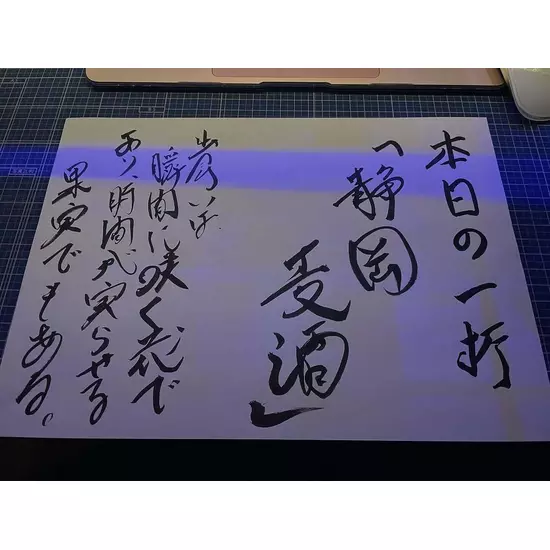 本日の一杯
「静岡
麦酒」
出会いは
瞬間に咲く花で
あり、時間が実らせる
果実でもある。